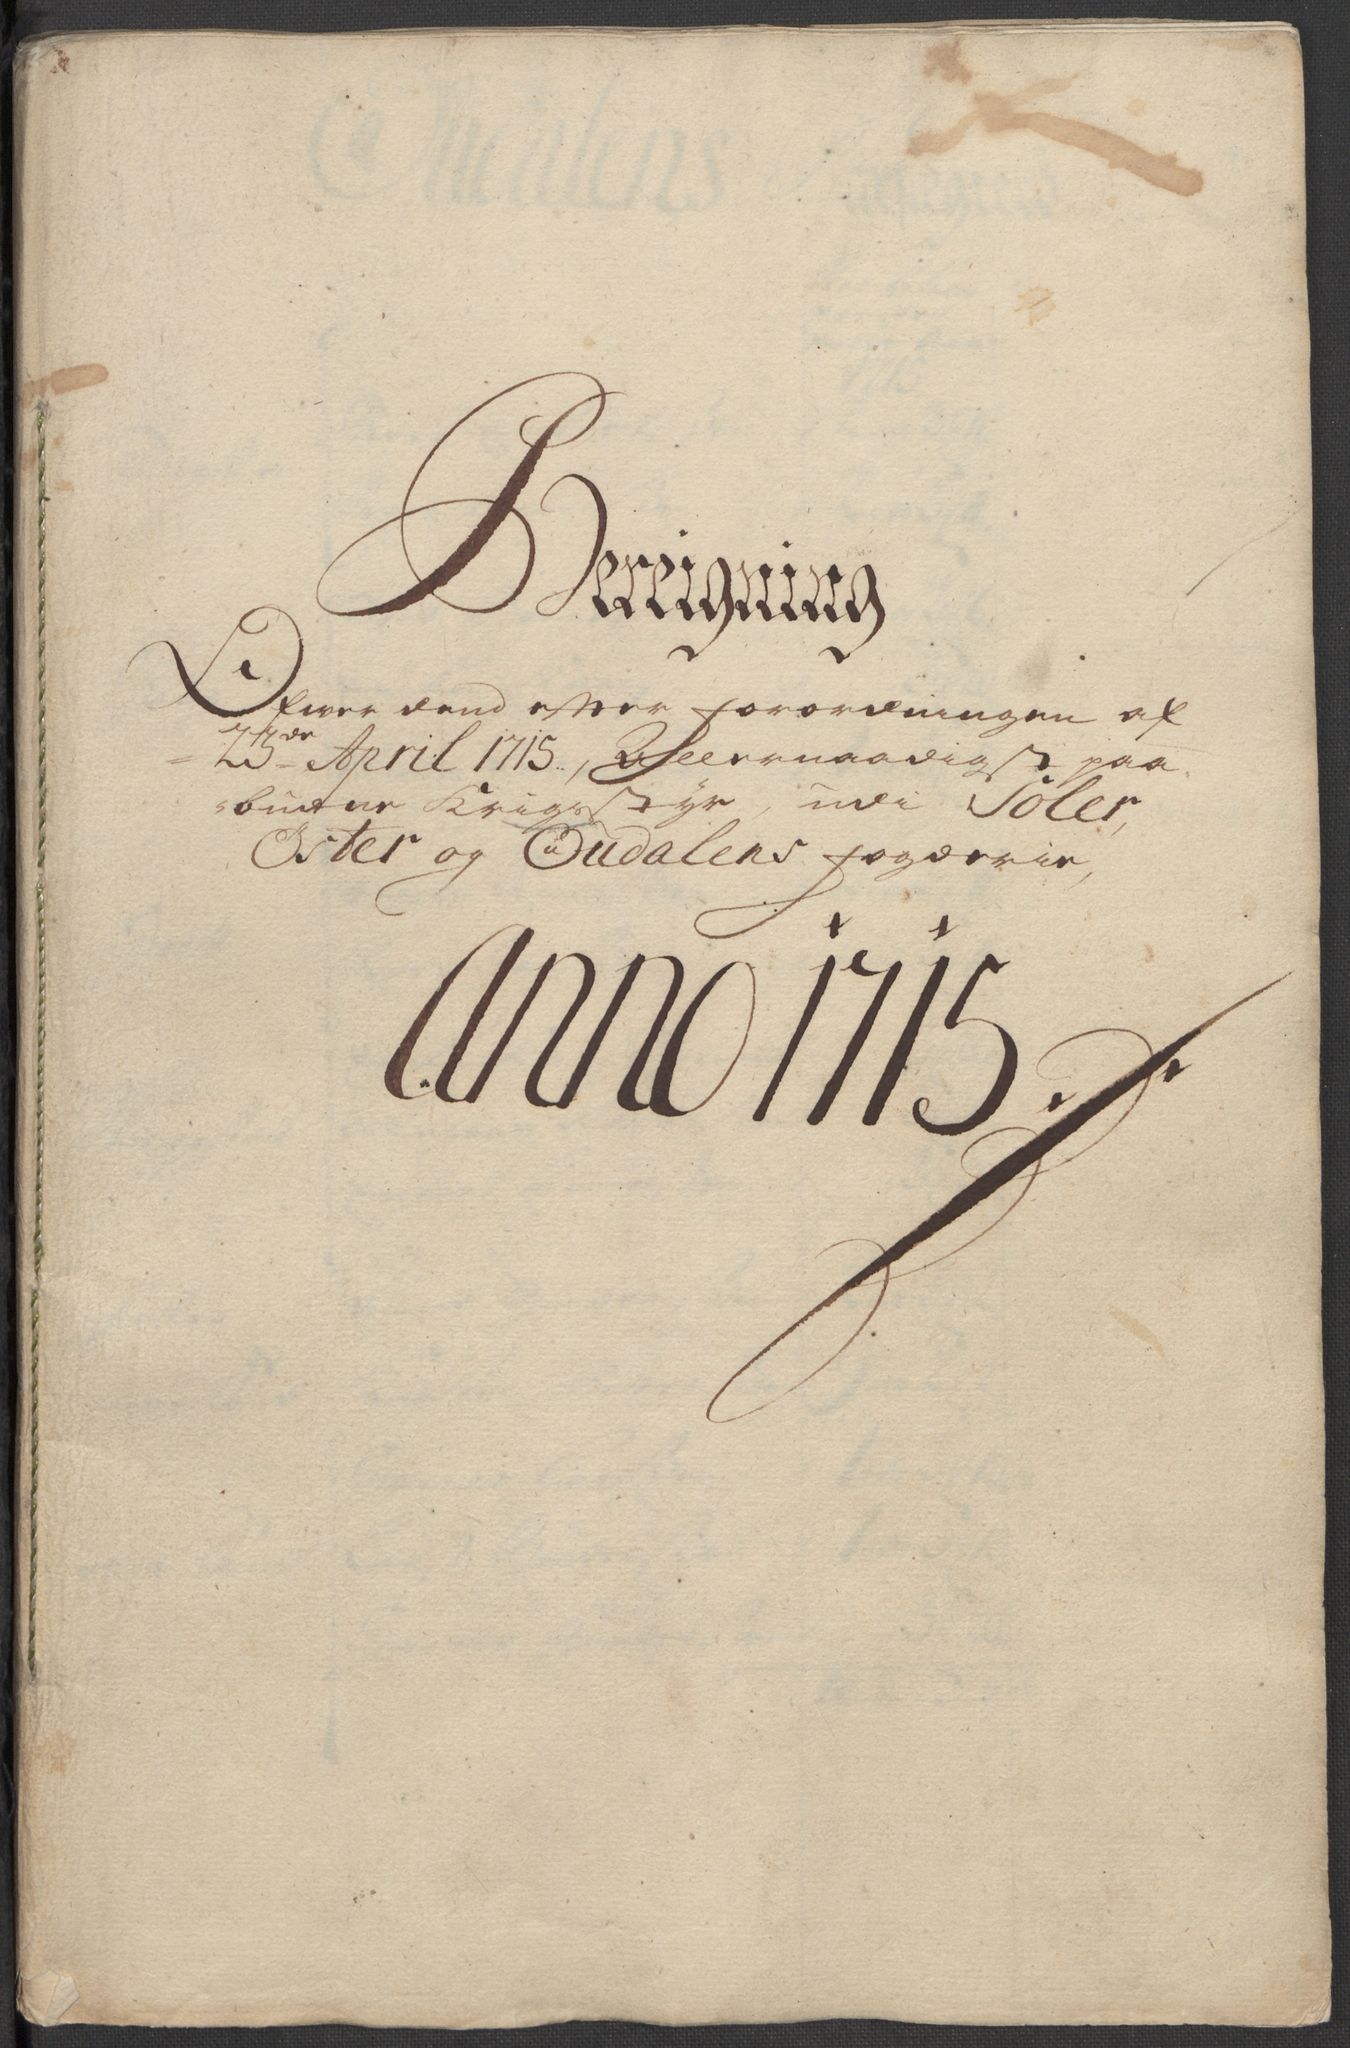 Bereigning
Ofwer dend efter forordningen af
23de April 1715, Allernaadigst paa-
budne Krigsstyr, udi Soler,
Oster og Oudalens fogderie,
Anno 1715.